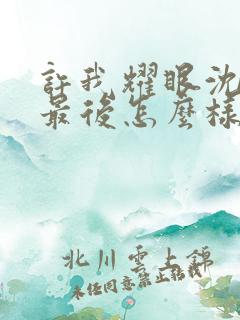 許我耀眼沈
最後怎麼樣
北川雲上錦
未經同意禁止轉載